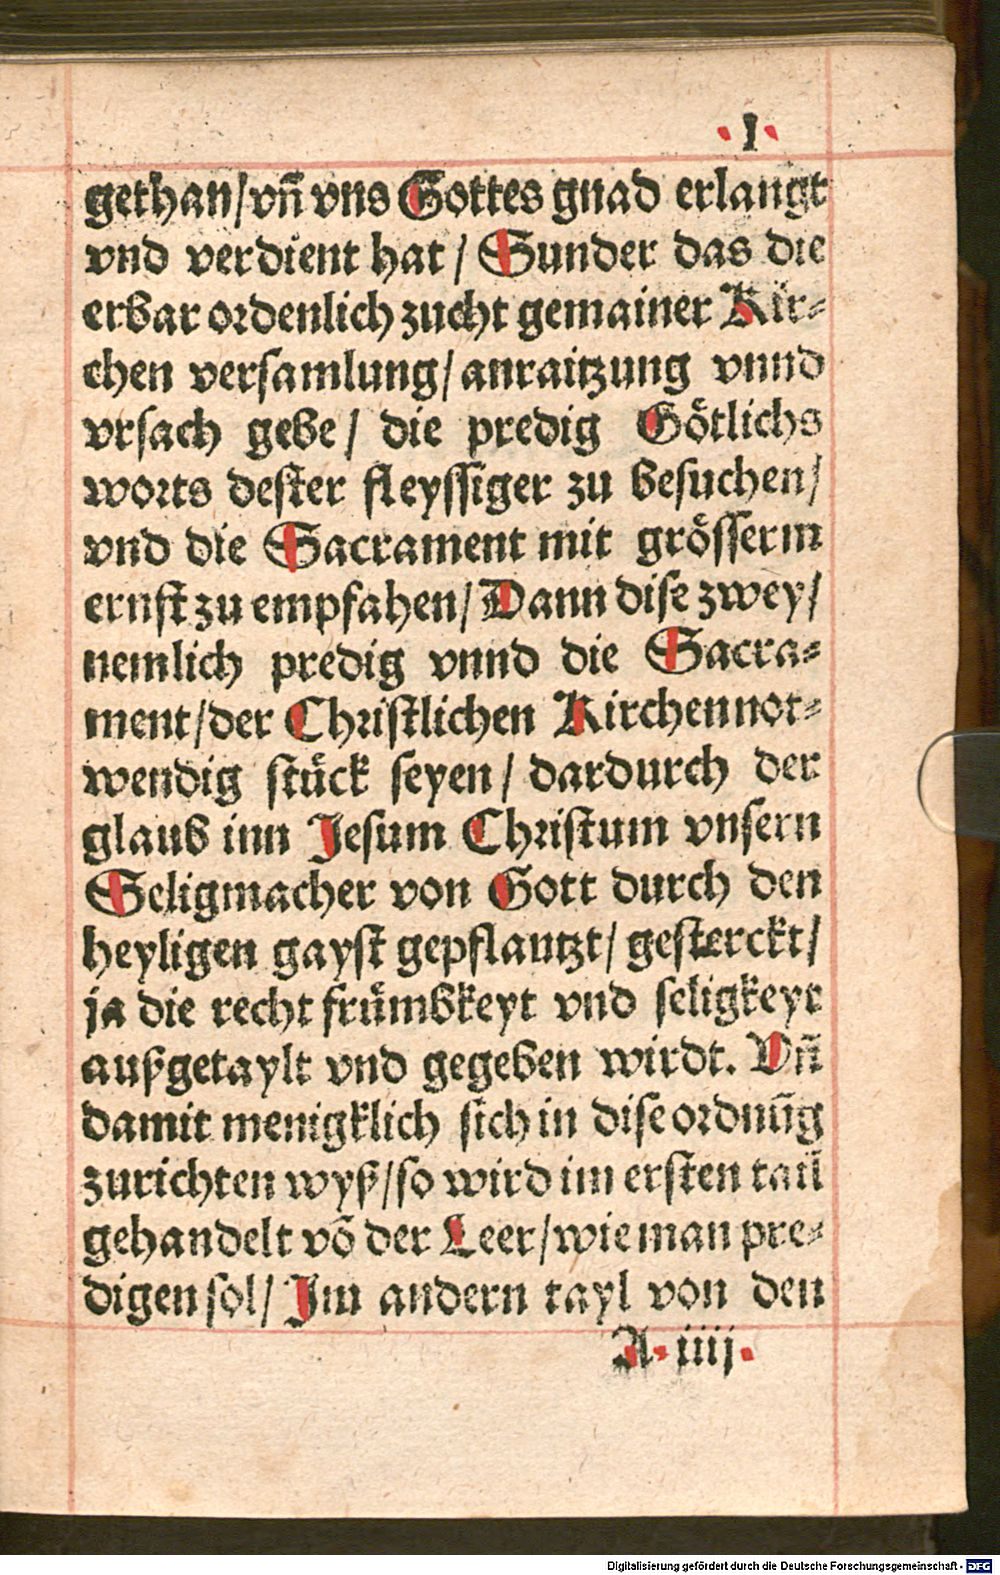 ·I·
gethan/ vñ vns Gottes gnad erlangt
vnd verdient hat / Sunder das die
erbar ordenlich zucht gemainer Kir⸗
chen versamlung/ anraitzung vnnd
vrsach gebe / die predig Götlichs
worts dester fleyssiger zu besuchen/
vnd die Sacrament mit grösserm
ernst zu empfahen/ Dann dise zwey/
nemlich predig vnnd die Sacra⸗
ment/ der Christlichen Kirchen not⸗
wendig stück seyen / dardurch der
glaub inn Jesum Christum vnsern
Seligmacher von Gott durch den
heyligen gayst gepflantzt/ gesterckt/
ja die recht frümbkeyt vnd seligkeyt
außgetaylt vnd gegeben wirdt. Vñ
damit menigklich sich in dise ordnūg
zurichten wyß/ so wird im ersten tail
gehandelt võ der Leer/ wie man pre⸗
digen sol/ Im andern tayl von den
A· iiij·
Digitalisierung gefördert durch die Deutsche Forschungsgemeinschaft - DFG